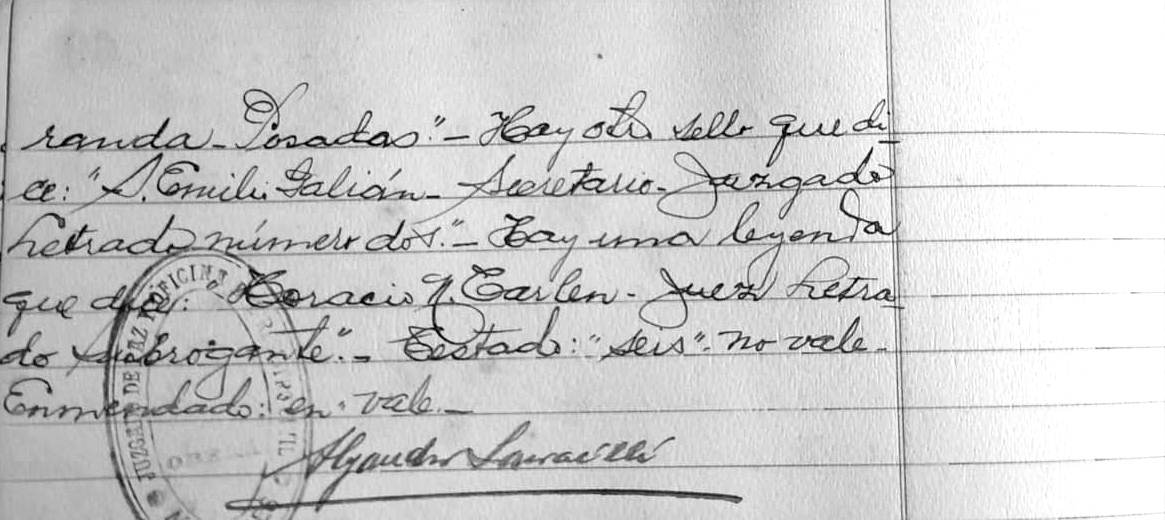 randa - Posadas." - Hay otro sello que di-
ce: "S. Emilio Galián - Secretario - Juzgado
Letrado número dos." - Hay una leyenda
que dice: Horacio N. Carlen - Juez Letra-
do subrogante." - Testado: "seis" no vale -
Enmendado: en - vale -
Alejandro
JUZGADO DE PAZ OFICINA